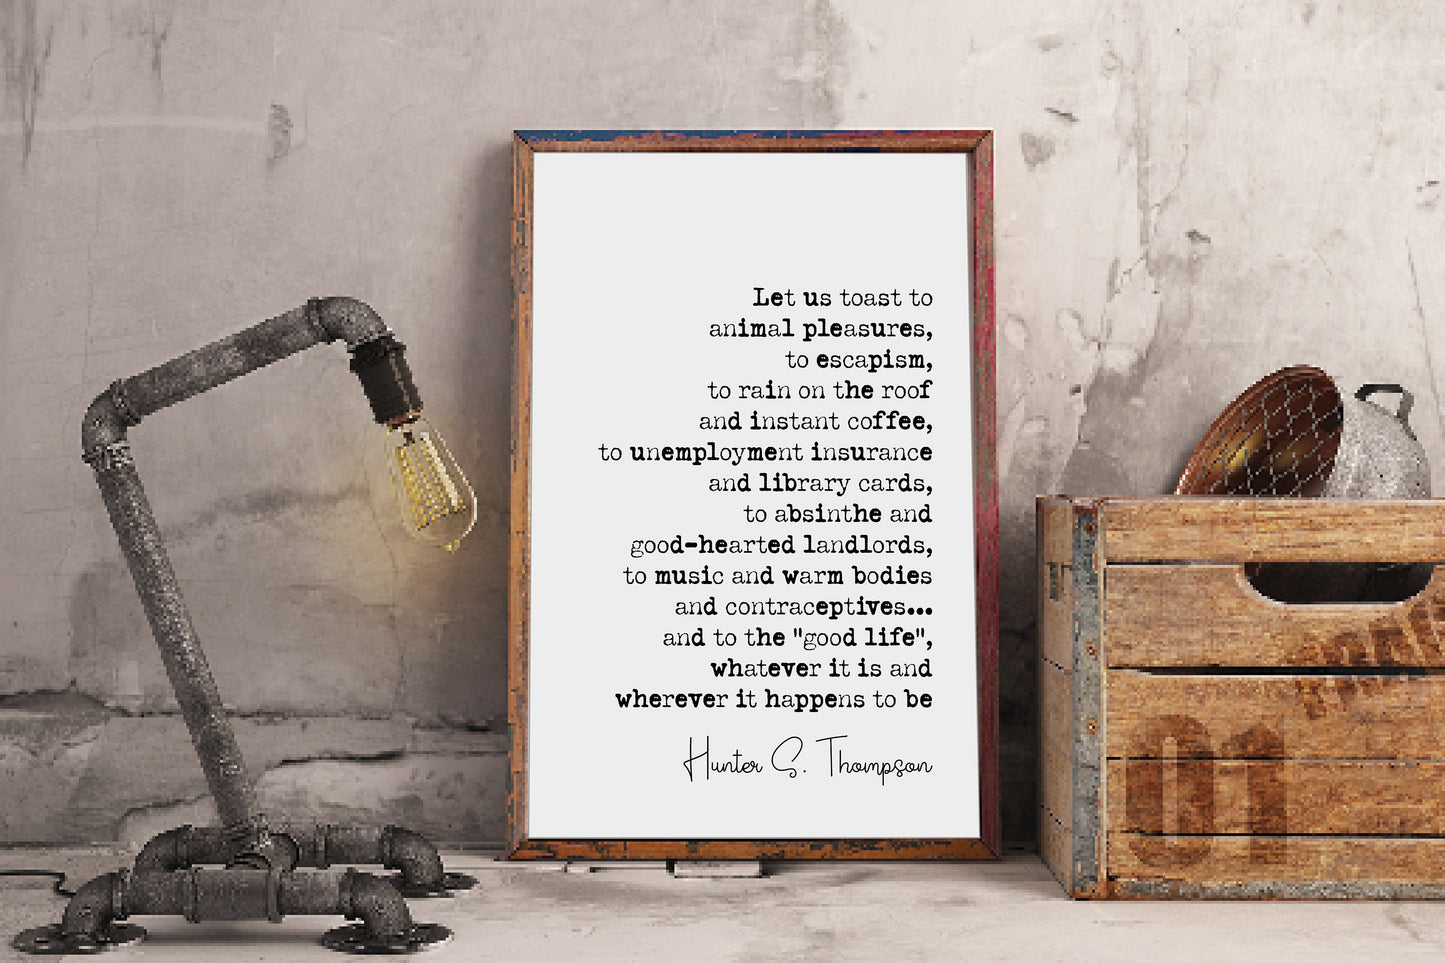 Let us toast to
animal pleasures,
to escapism,
to rain on the roof
and instant coffee,
to unemployment insurance
and library cards,
to absinthe and
good-hearted landlords,
to music and warm bodies
and contraceptives...
and to the "good life",
whatever it is and
wherever it happens to be
Hunter S. Thompson
01